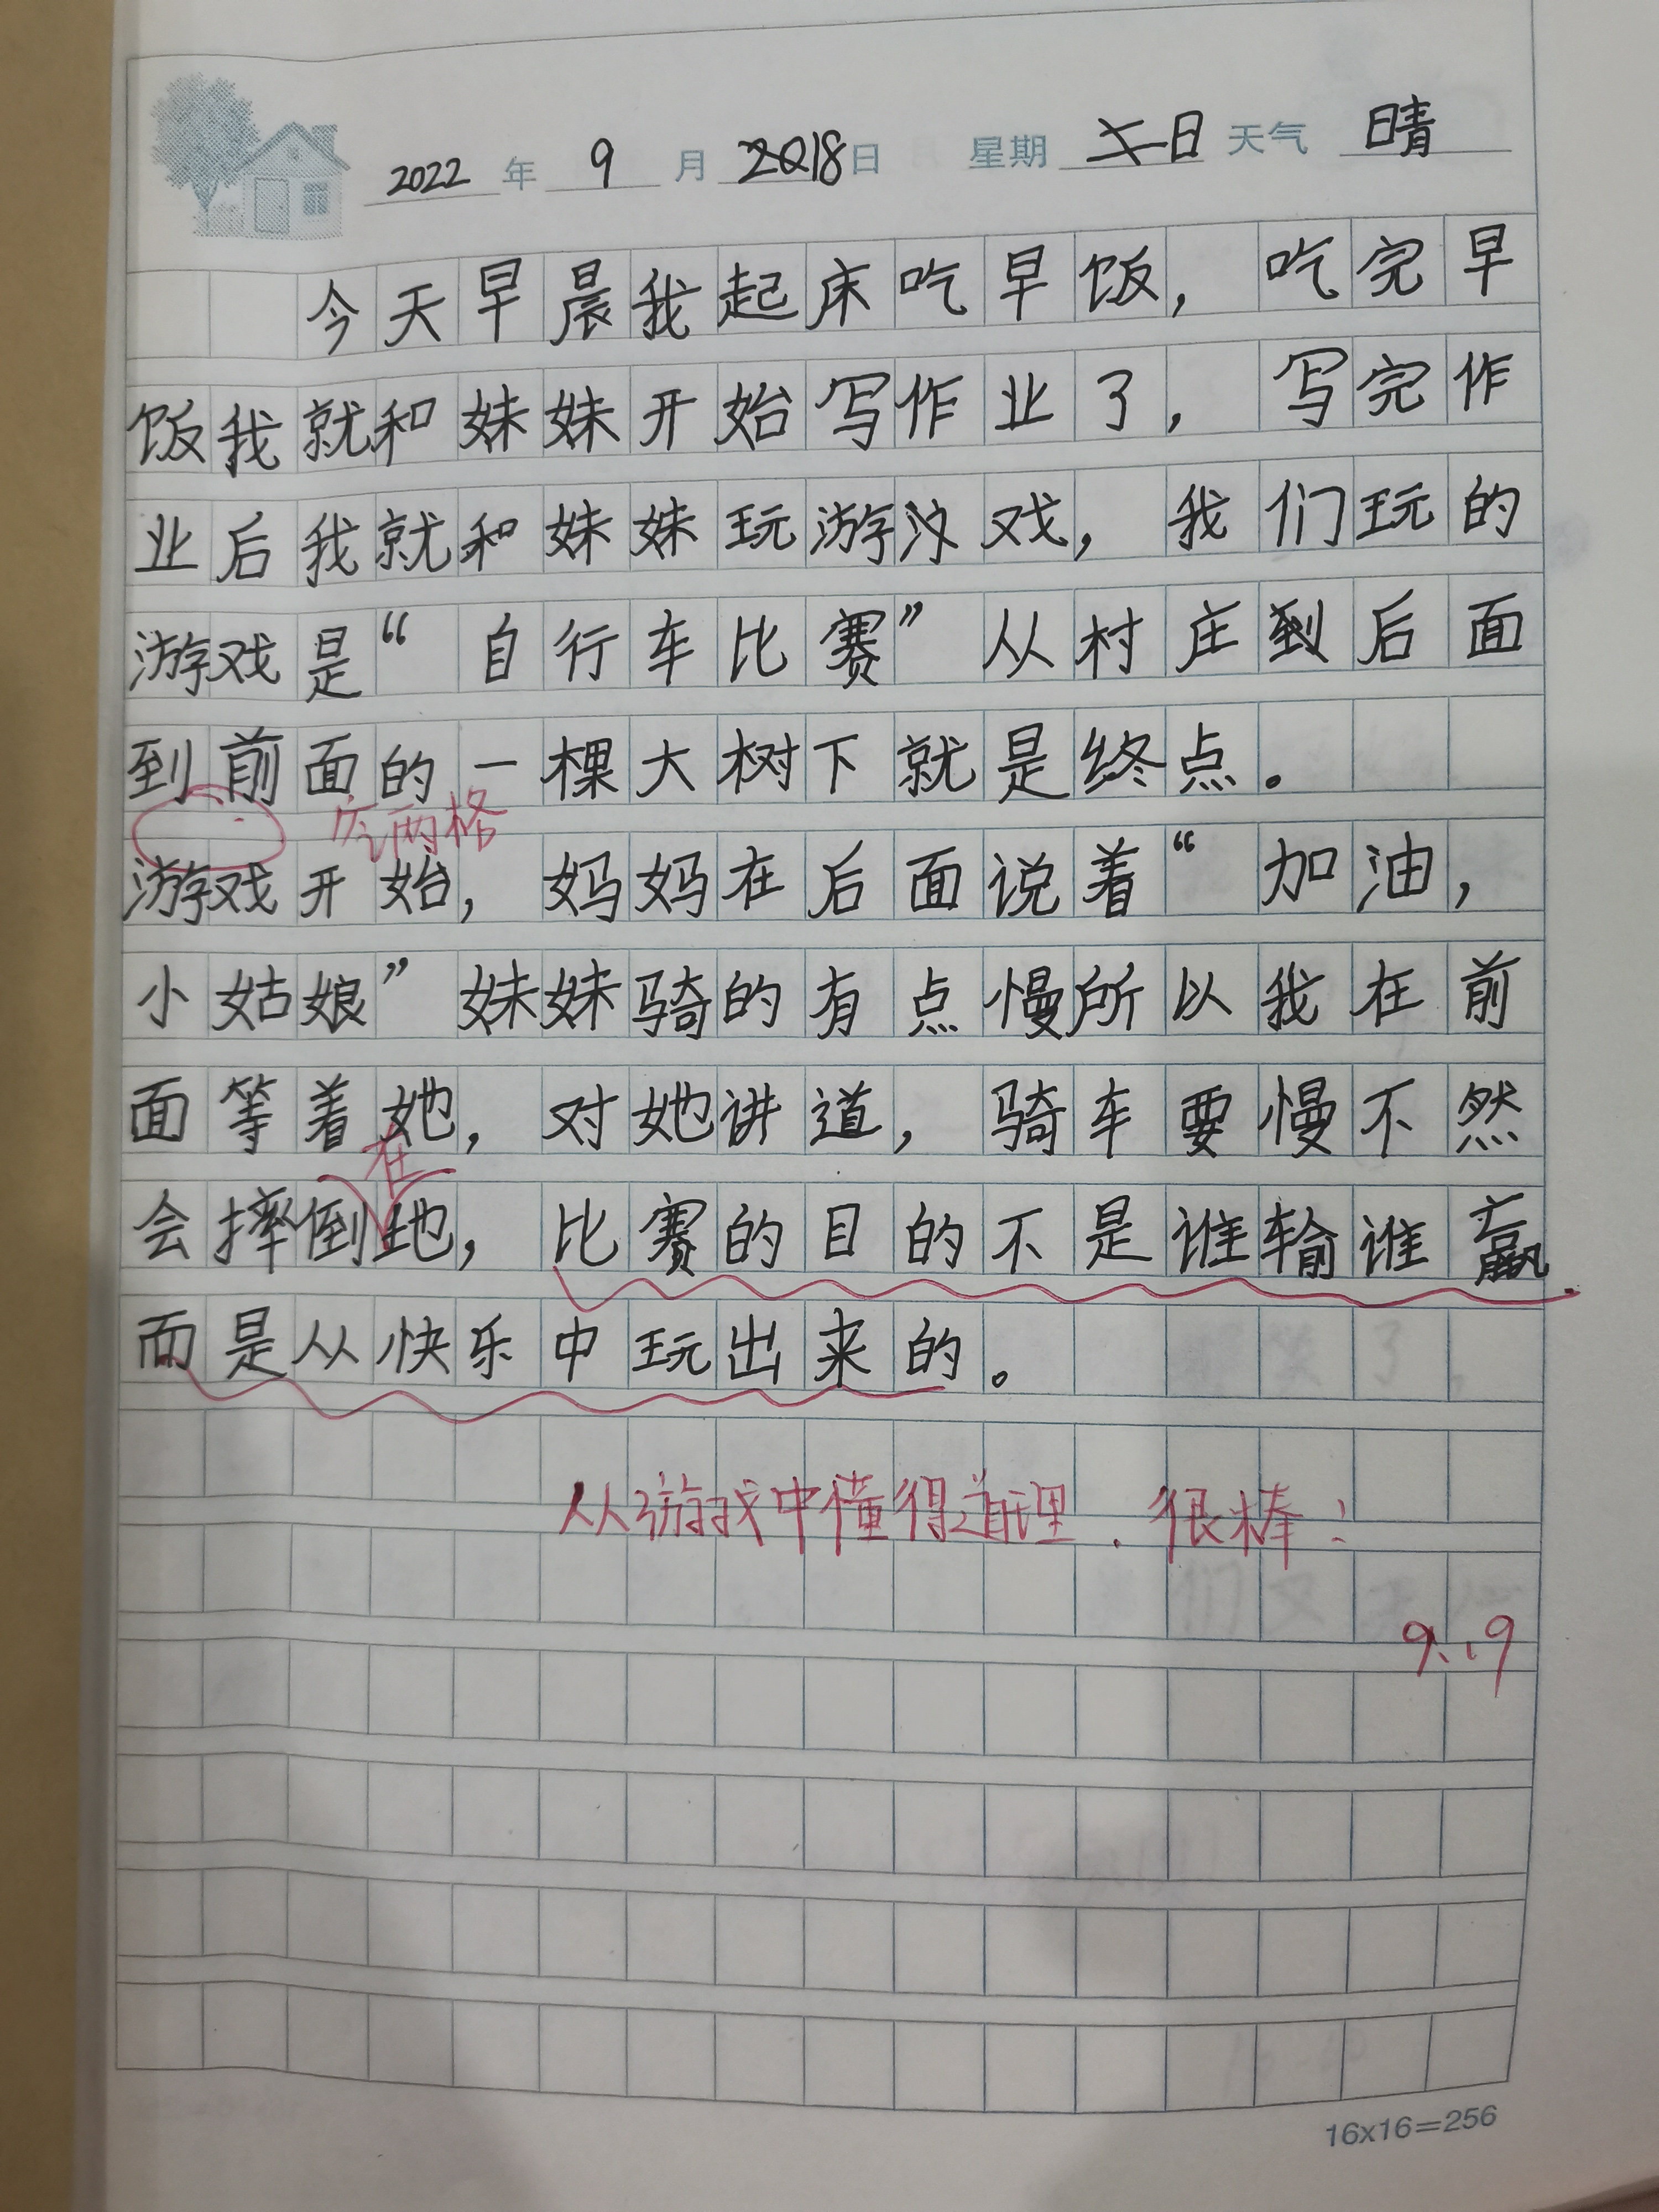 2022年 9月 18日 星期 日 天气 晴
今天早晨我起床吃早饭，吃完早
饭我就和妹妹开始写作业了，写完作
业后我就和妹妹玩游戏，我们玩的
游戏是“自行车比赛”从村庄到后面
到前面的一棵大树下就是终点。
空两格
游戏开始，妈妈在后面说着“加油，
小姑娘”妹妹骑的有点慢所以我在前
面等着她，对她讲道，骑车要慢不然
在
会摔倒地，比赛的目的不是谁输谁赢
而是从快乐中玩出来的。
从游戏中懂得道理．很棒！
9.19
16x16=256